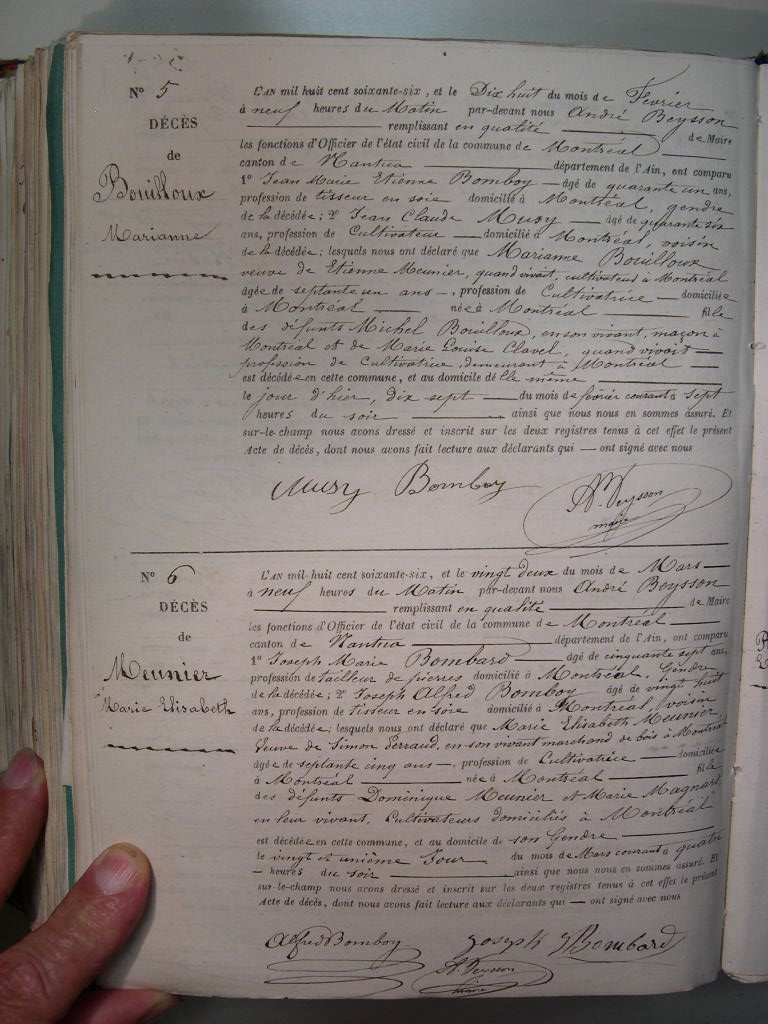 N° 5
DÉCÈS
de
Bouilloux
Marianne
L'AN mil huit cent soixante-six, et le Dix huit du mois de Février
à neuf heures du Matin par-devant nous André Beysson
remplissant en qualité de Maire
les fonctions d'Officier de l'état civil de la commune de Montréal
canton de Nantua département de l'Ain, ont comparu
1° Jean Marie Etienne Bomboy âgé de quarante un ans,
profession de tisseur en soie domicilié à Montréal, gendre
de la décédée; 2° Jean Claude Musy âgé de quarante six
ans, profession de Cultivateur domicilié à Montréal, voisin
de la décédée; lesquels nous ont déclaré que Marianne Bouilloux
veuve de Etienne Meunier, quand vivait, cultivateur à Montréal
âgée de septante un ans, profession de Cultivatrice domiciliée
à Montréal née à Montréal fille
des défunts Michel Bouilloux, en son vivant, maçon à
Montréal et de Marie Louise Clavel, quand vivait
profession de Cultivatrice, demeurant à Montréal
est décédée en cette commune, et au domicile d'elle même
le jour d'hier, dix sept du mois de février courant à sept
heures du soir ainsi que nous nous en sommes assuré. Et
sur-le-champ nous avons dressé et inscrit sur les deux registres tenus à cet effet le présent
Acte de décès, dont nous avons fait lecture aux déclarants qui ont signé avec nous
Musy Bomboy A. Beysson
maire
N° 6
DÉCÈS
de
Meunier
Marie Elisabeth
L'AN mil huit cent soixante-six, et le vingt deux du mois de Mars
à neuf heures du Matin par-devant nous André Beysson
remplissant en qualité de Maire
les fonctions d'Officier de l'état civil de la commune de Montréal
canton de Nantua département de l'Ain, ont comparu
1° Joseph Marie Bombard âgé de cinquante sept ans,
profession de tailleur de pierres domicilié à Montréal, Gendre
de la décédée; 2° Joseph Alfred Bomboy âgé de vingt huit
ans, profession de tisseur en soie domicilié à Montréal, voisin
de la décédée; lesquels nous ont déclaré que Marie Elisabeth Meunier
Veuve de Simon Perraud, en son vivant marchand de bois à Montréal
âgée de septante cinq ans, profession de Cultivatrice domiciliée
à Montréal née à Montréal fille
des défunts Dominique Meunier et Marie Magnard
en leur vivant, Cultivateurs domiciliés à Montréal
est décédée en cette commune, et au domicile de son Gendre
le vingt et unième Jour du mois de Mars courant à quatre
heures du soir ainsi que nous nous en sommes assuré. Et
sur-le-champ nous avons dressé et inscrit sur les deux registres tenus à cet effet le présent
Acte de décès, dont nous avons fait lecture aux déclarants qui ont signé avec nous
Alfred Bomboy Joseph Bombard
A. Beysson
maire